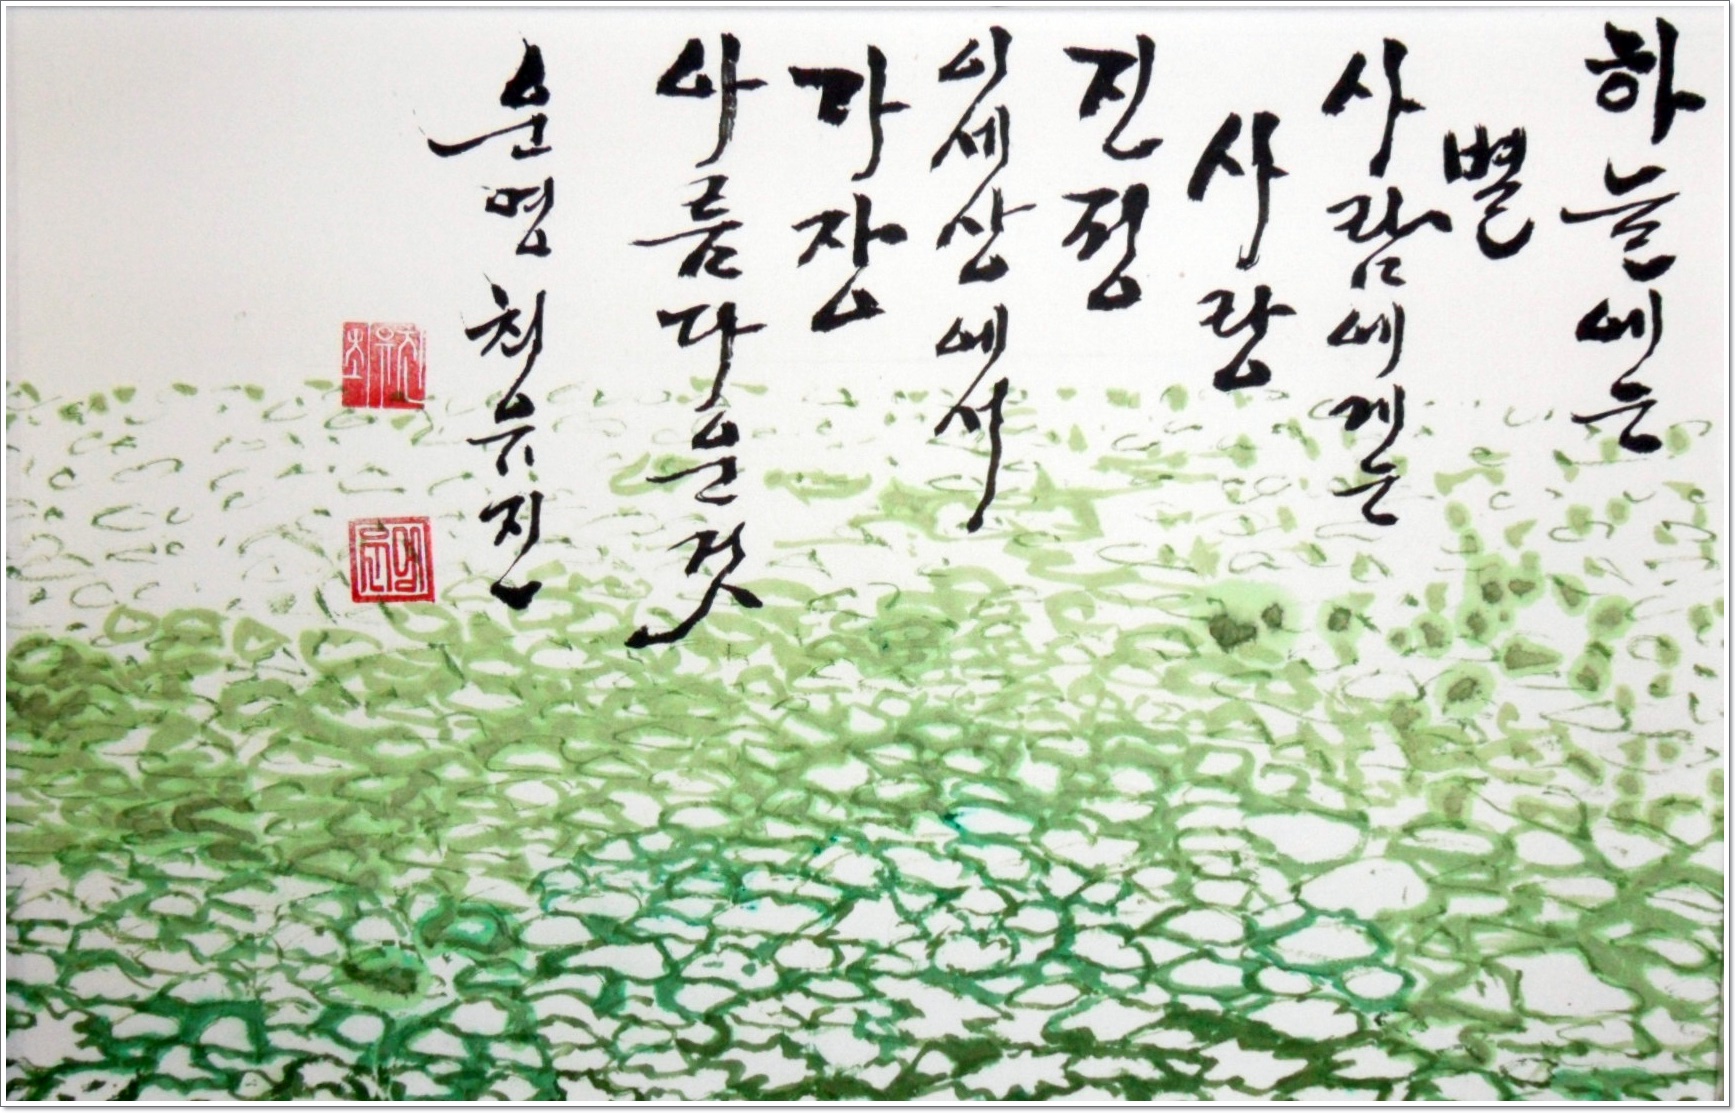 하늘에는
별
사람에게는
사랑
진정
이세상에서
가장
아름다운것
최유진
최유진